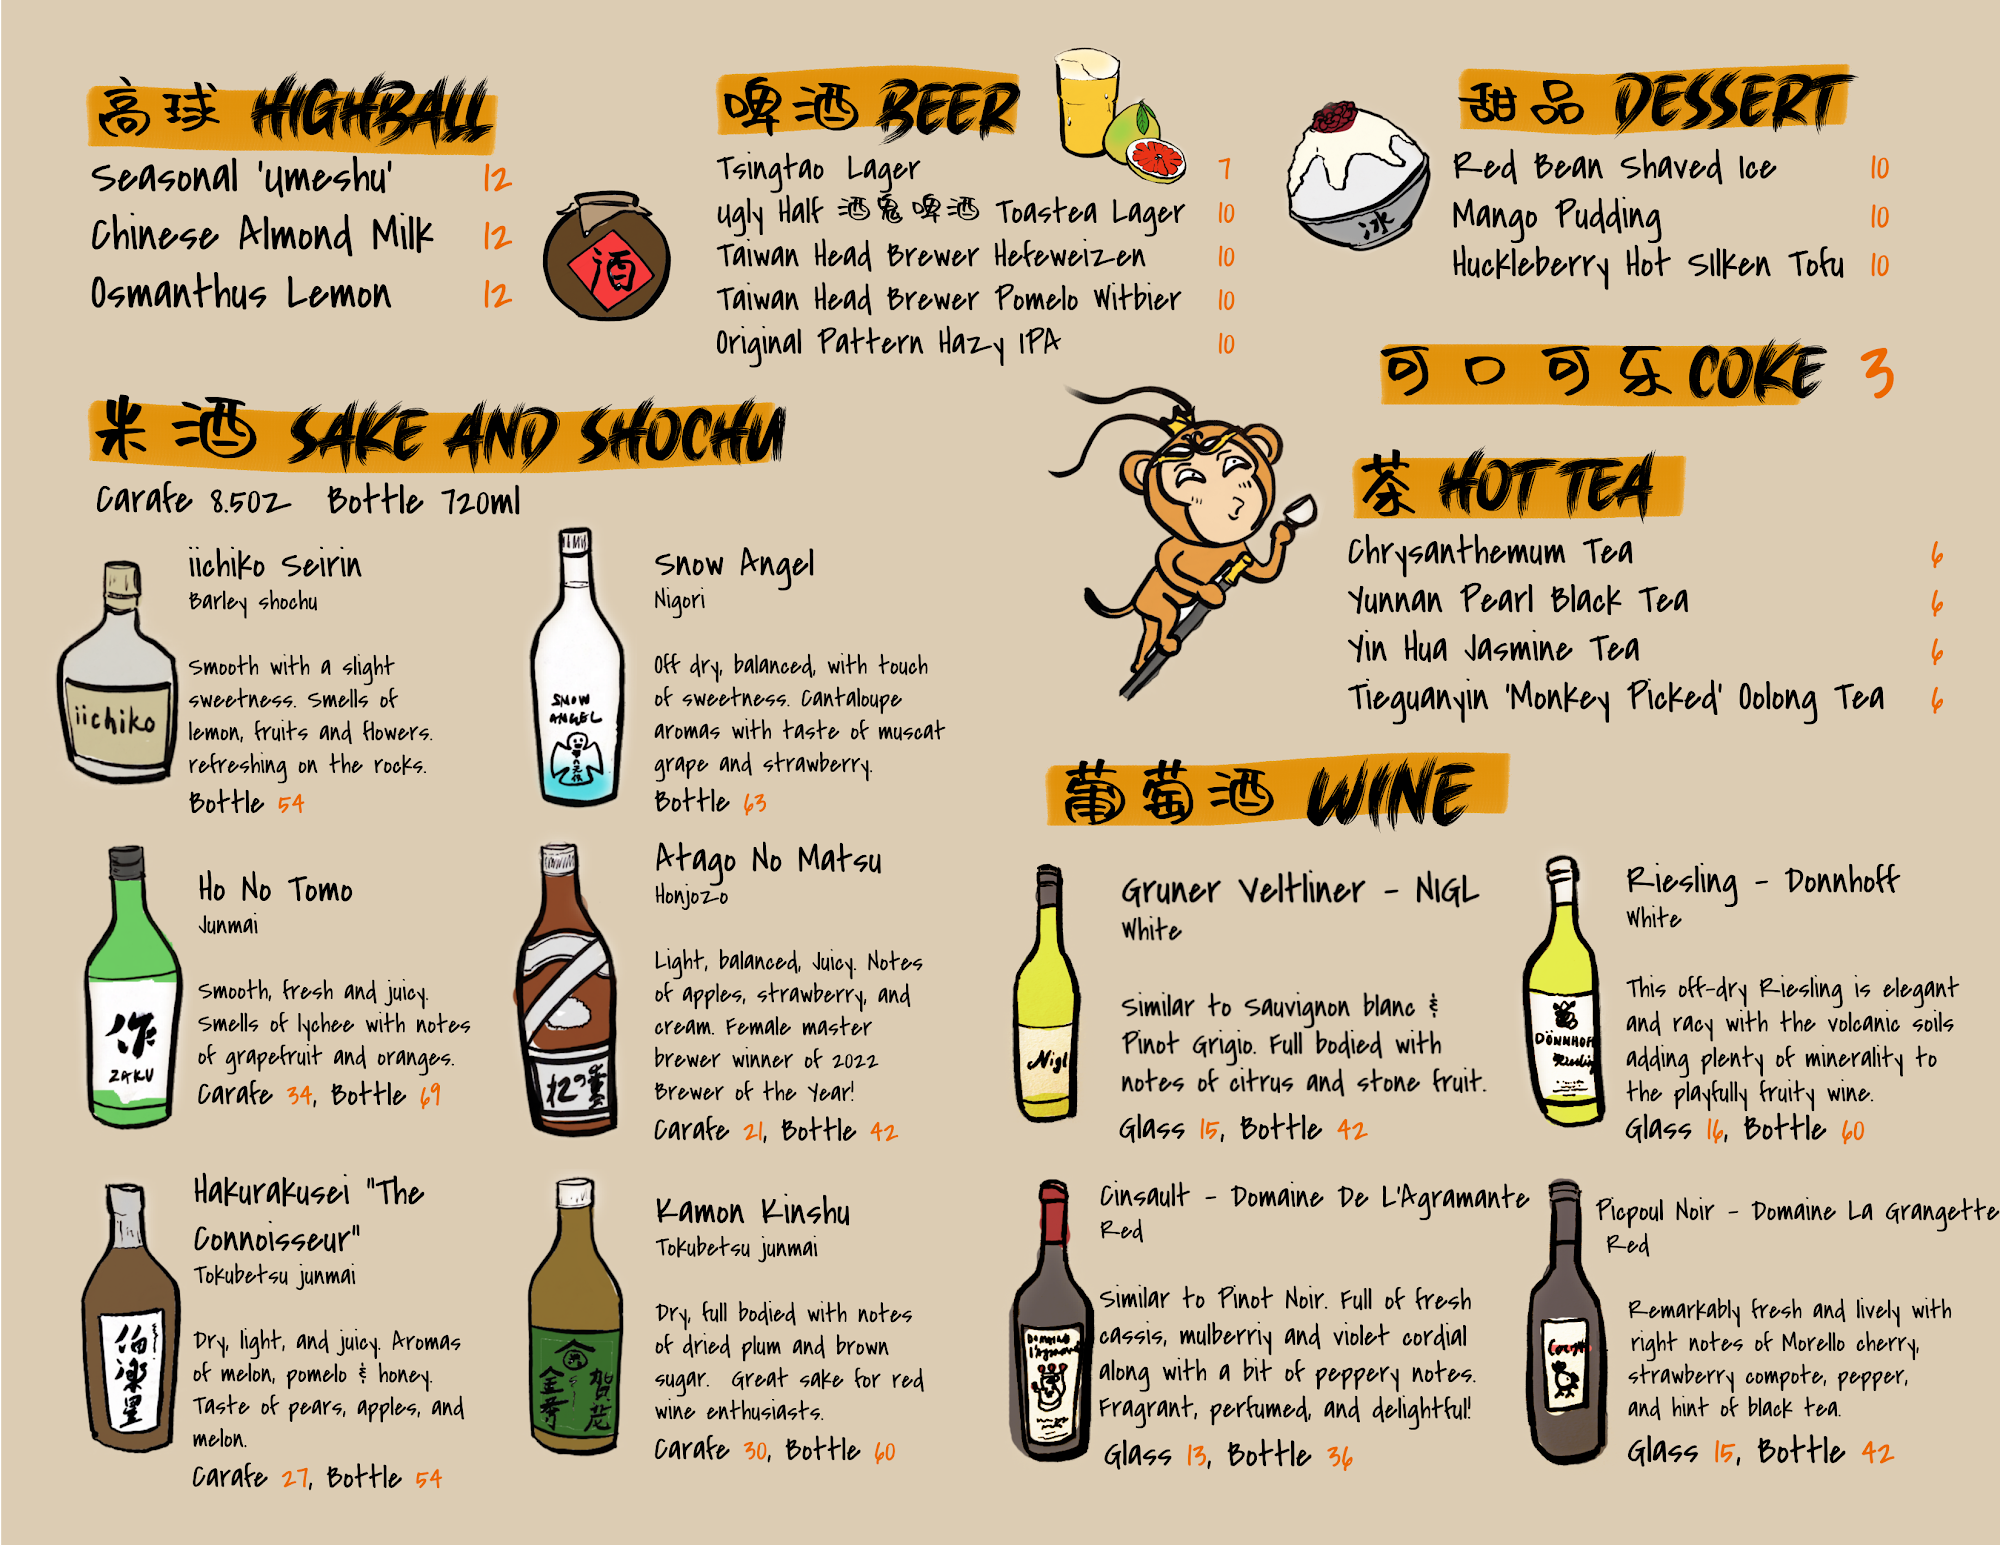 高球 HIGHBALL
Seasonal 'Umeshu' 12
Chinese Almond Milk 12
Osmanthus Lemon 12
酒
啤酒 BEER
Tsingtao Lager 7
Ugly Half 酒鬼啤酒 Toastea Lager 10
Taiwan Head Brewer Hefeweizen 10
Taiwan Head Brewer Pomelo Witbier 10
Original Pattern Hazy IPA 10
冰
甜品 DESSERT
Red Bean Shaved Ice 10
Mango Pudding 10
Huckleberry Hot Silken Tofu 10
可口可乐 COKE 3
茶 HOT TEA
Chrysanthemum Tea 6
Yunnan Pearl Black Tea 6
Yin Hua Jasmine Tea 6
Tieguanyin 'Monkey Picked' Oolong Tea 6
米酒 SAKE AND SHOCHU
Carafe 8.5oz Bottle 720ml
iichiko
iichiko Seirin
Barley shochu
Smooth with a slight
sweetness. Smells of
lemon, fruits and flowers.
refreshing on the rocks.
Bottle 54
SNOW
ANGEL
Snow Angel
Nigori
Off dry, balanced, with touch
of sweetness. Cantaloupe
aromas with taste of muscat
grape and strawberry.
Bottle 63
作
ZAKU
Ho No Tomo
Junmai
Smooth, fresh and juicy.
Smells of lychee with notes
of grapefruit and oranges.
Carafe 34, Bottle 69
Atago No Matsu
Honjozo
Light, balanced, Juicy. Notes
of apples, strawberry, and
cream. Female master
brewer winner of 2022
Brewer of the Year!
Carafe 21, Bottle 42
伯楽星
Hakurakusei "The
Connoisseur"
Tokubetsu junmai
Dry, light, and juicy. Aromas
of melon, pomelo & honey.
Taste of pears, apples, and
melon.
Carafe 27, Bottle 54
賀茂
金秀
Kamon Kinshu
Tokubetsu junmai
Dry, full bodied with notes
of dried plum and brown
sugar. Great sake for red
wine enthusiasts.
Carafe 30, Bottle 60
葡萄酒 WINE
Nigl
Gruner Veltliner - NIGL
White
Similar to Sauvignon blanc &
Pinot Grigio. Full bodied with
notes of citrus and stone fruit.
Glass 15, Bottle 42
DÖNNHOFF
Riesling
Riesling - Donnhoff
White
This off-dry Riesling is elegant
and racy with the volcanic soils
adding plenty of minerality to
the playfully fruity wine.
Glass 16, Bottle 60
Cinsault - Domaine De L'Agramante
Red
Similar to Pinot Noir. Full of fresh
cassis, mulberriy and violet cordial
along with a bit of peppery notes.
Fragrant, perfumed, and delightful!
Glass 13, Bottle 36
Picpoul Noir - Domaine La Grangette
Red
Remarkably fresh and lively with
right notes of Morello cherry,
strawberry compote, pepper,
and hint of black tea.
Glass 15, Bottle 42